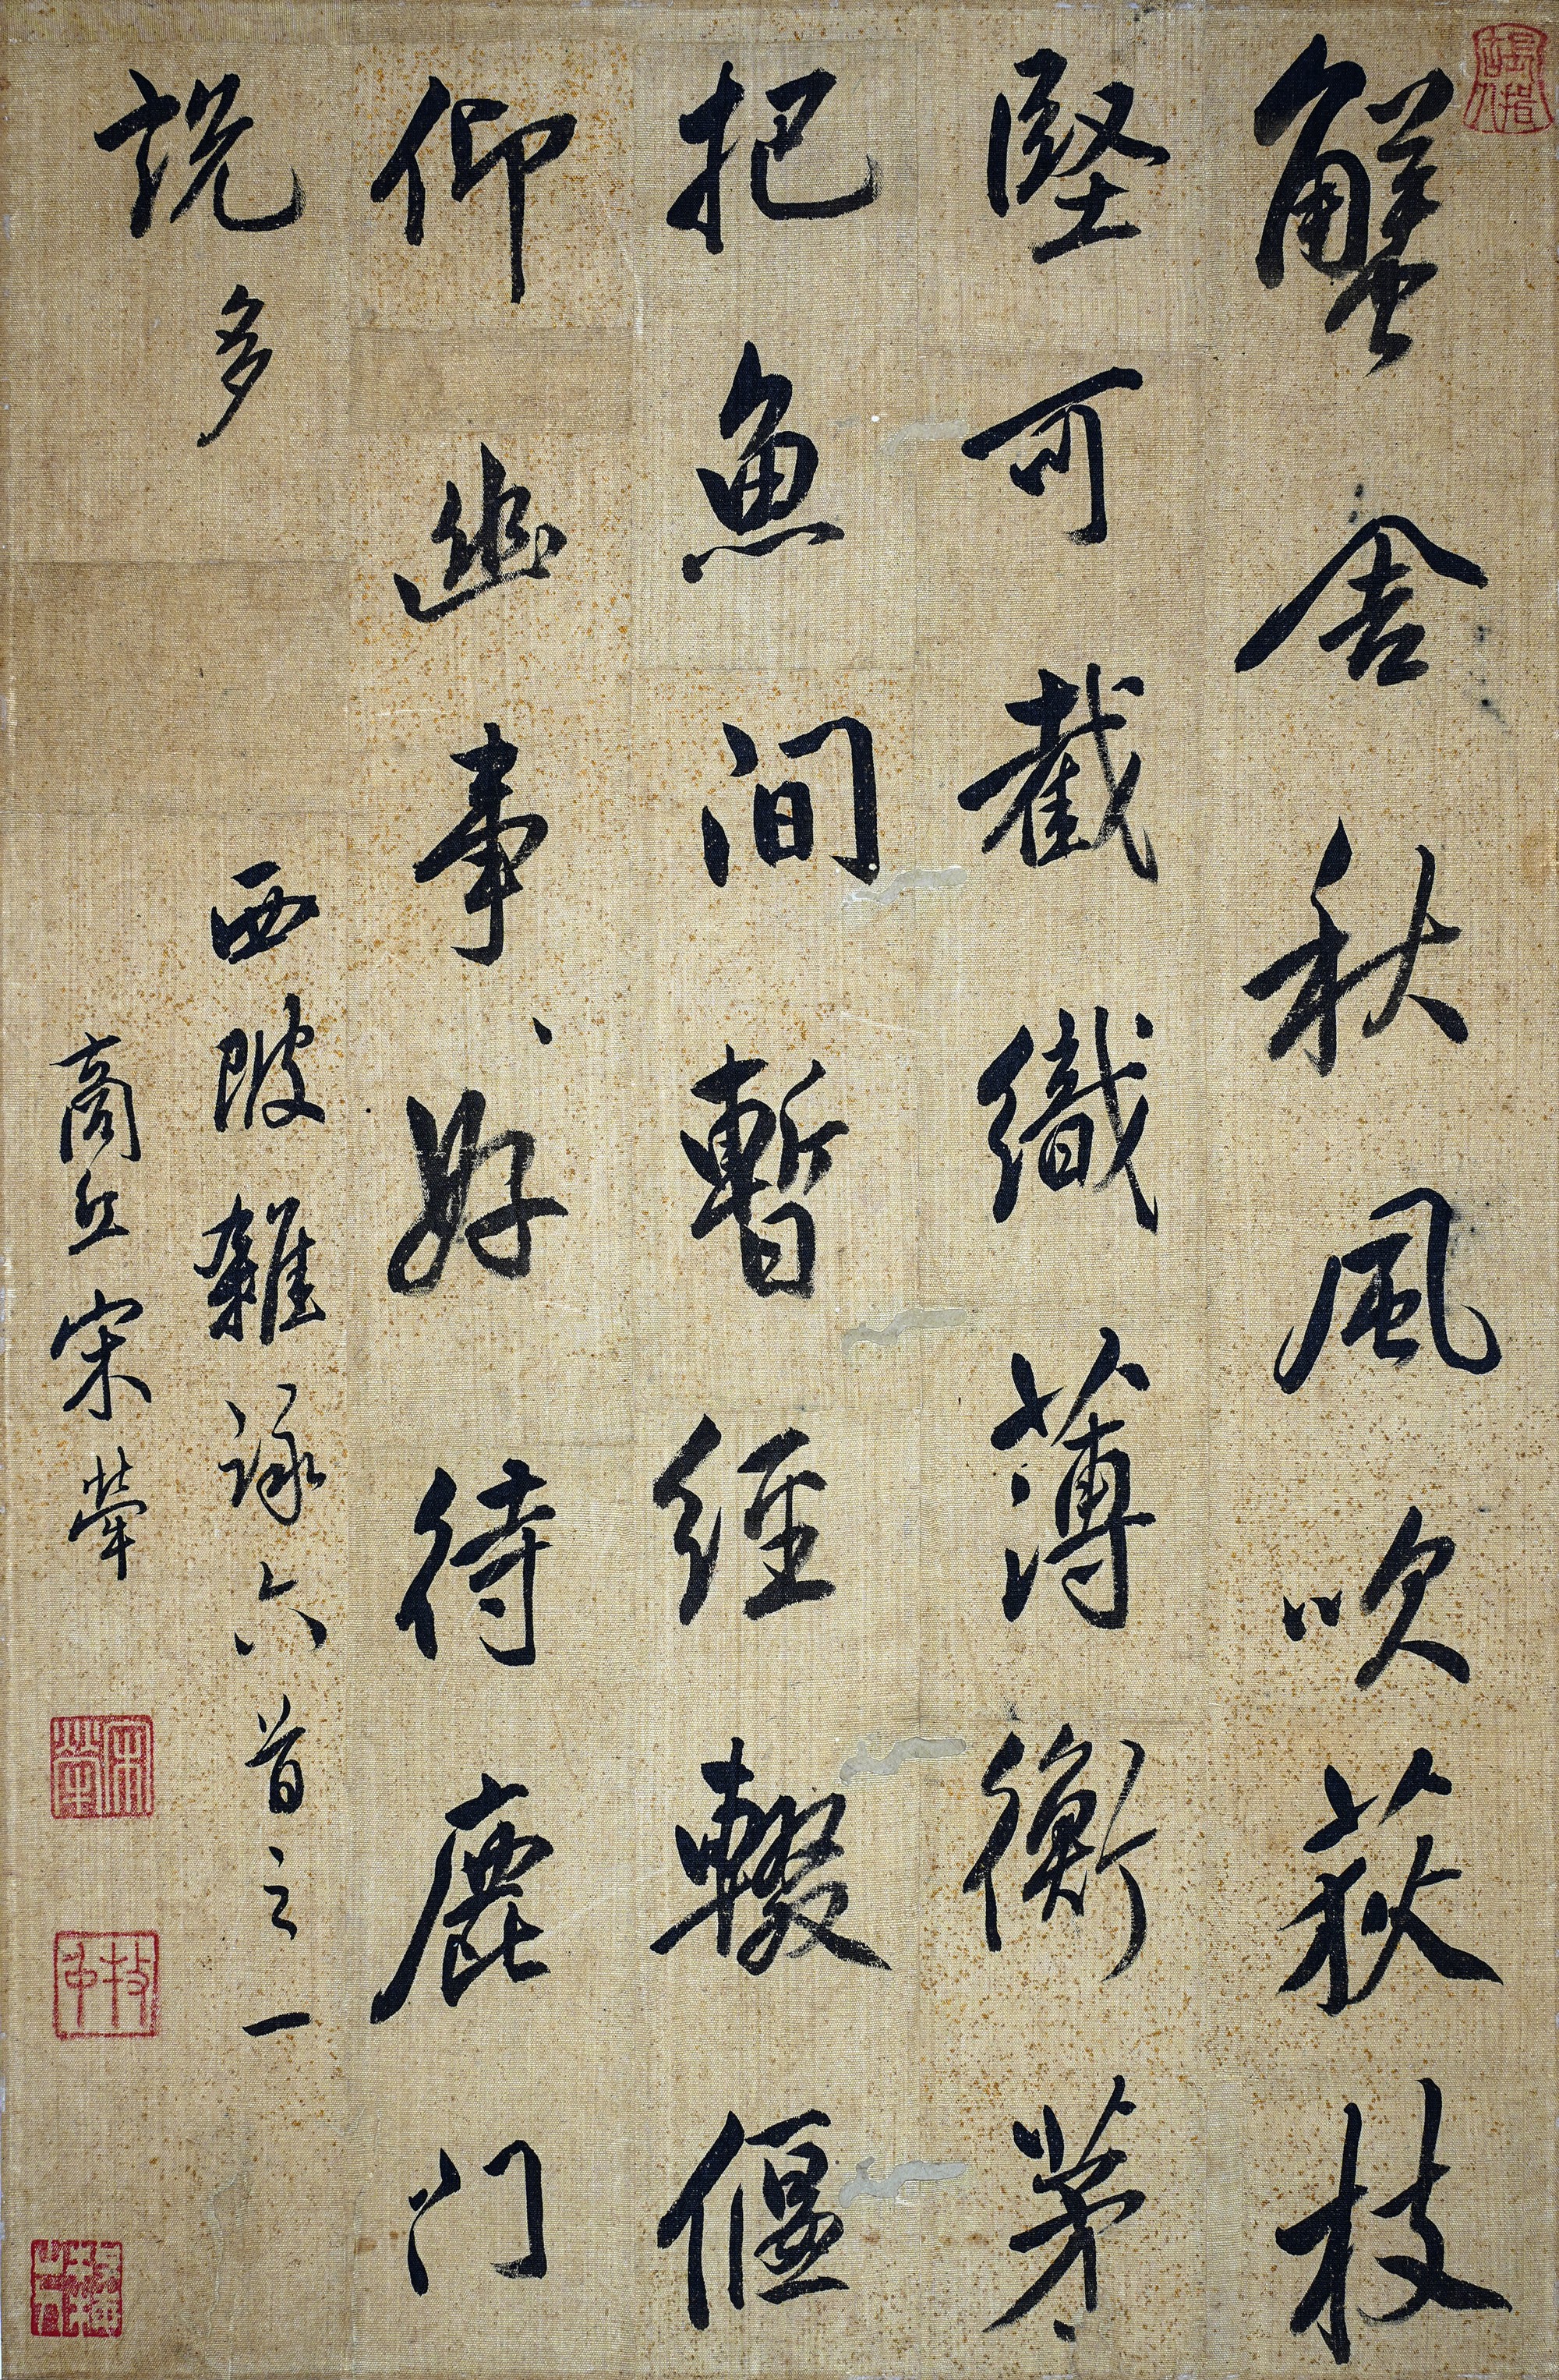 蟹舍秋風吹荻枝
堅可截織薄衡茅
把魚間暫經輟偃
仰幽事好待鹿門
說多
西陂雜詠六首之一
商丘宋犖
宋犖
牧仲